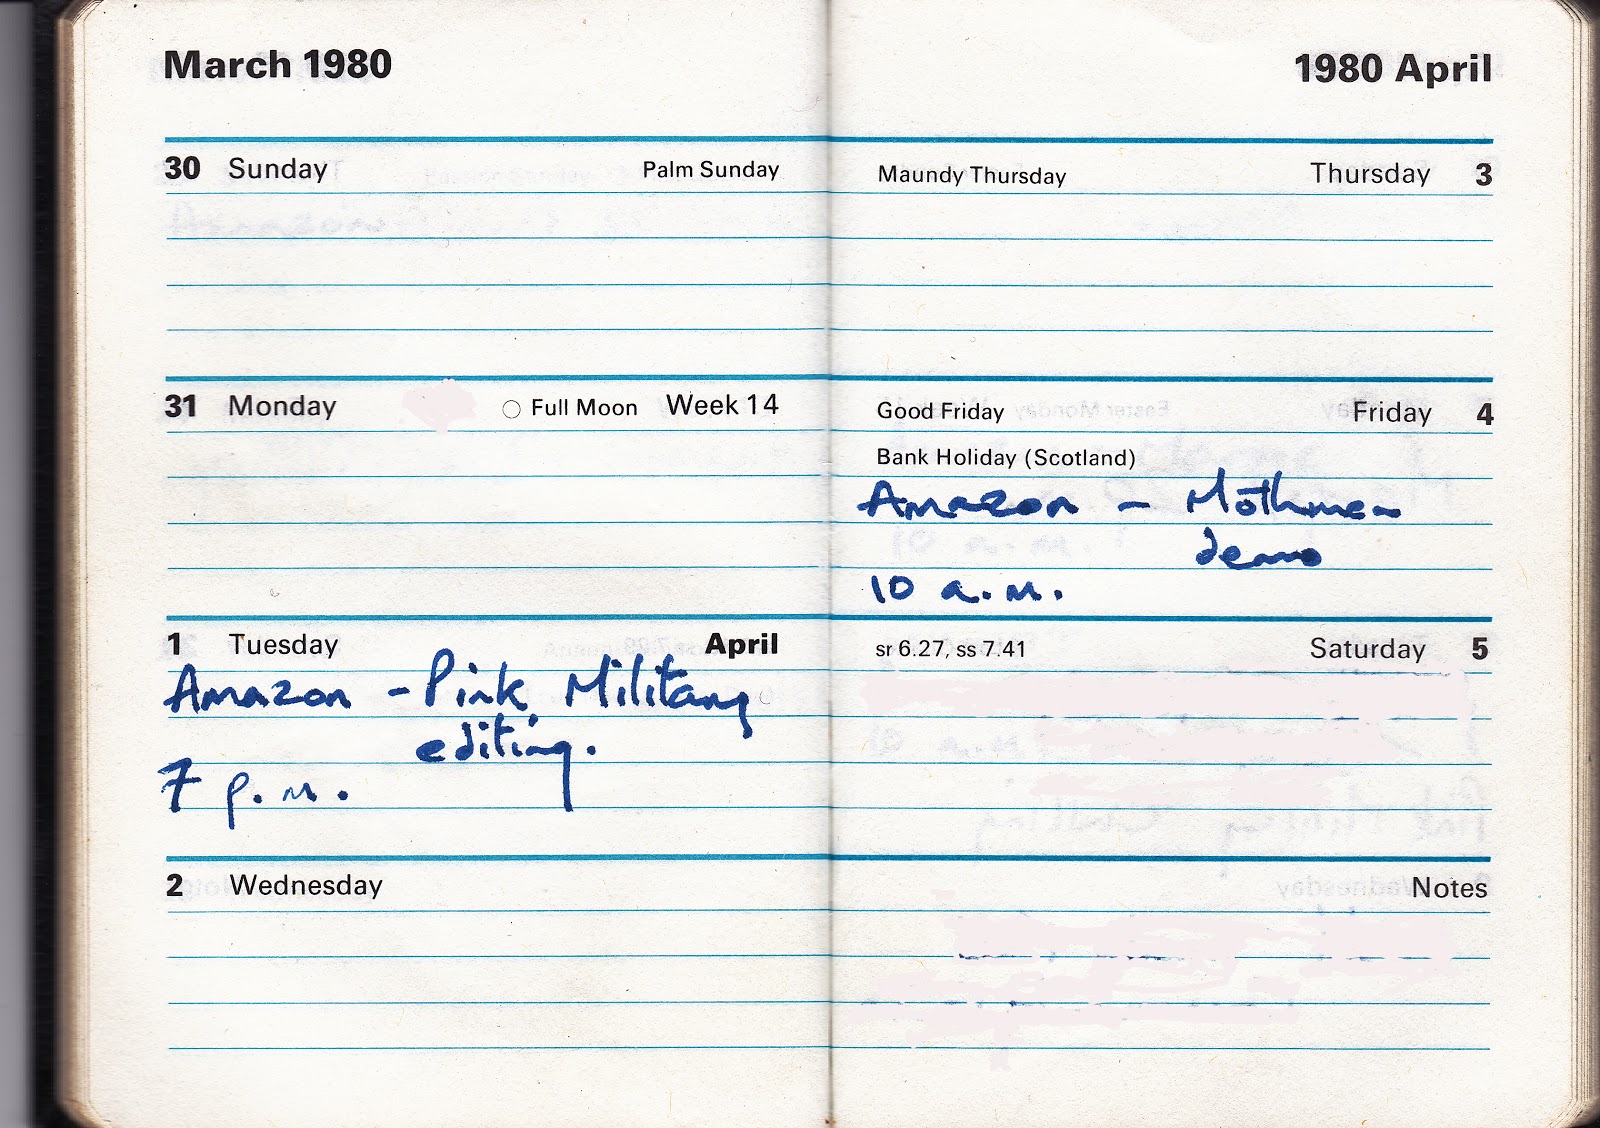 March 1980
30 Sunday Palm Sunday
31 Monday Full Moon Week 14
1 Tuesday April
Amazon - Pink Military
editing.
7 p.m.
2 Wednesday
1980 April
Maundy Thursday Thursday 3
Good Friday Friday 4
Bank Holiday (Scotland)
Amazon - Mothmen
demo
10 a.m.
sr 6.27, ss 7.41 Saturday 5
Notes